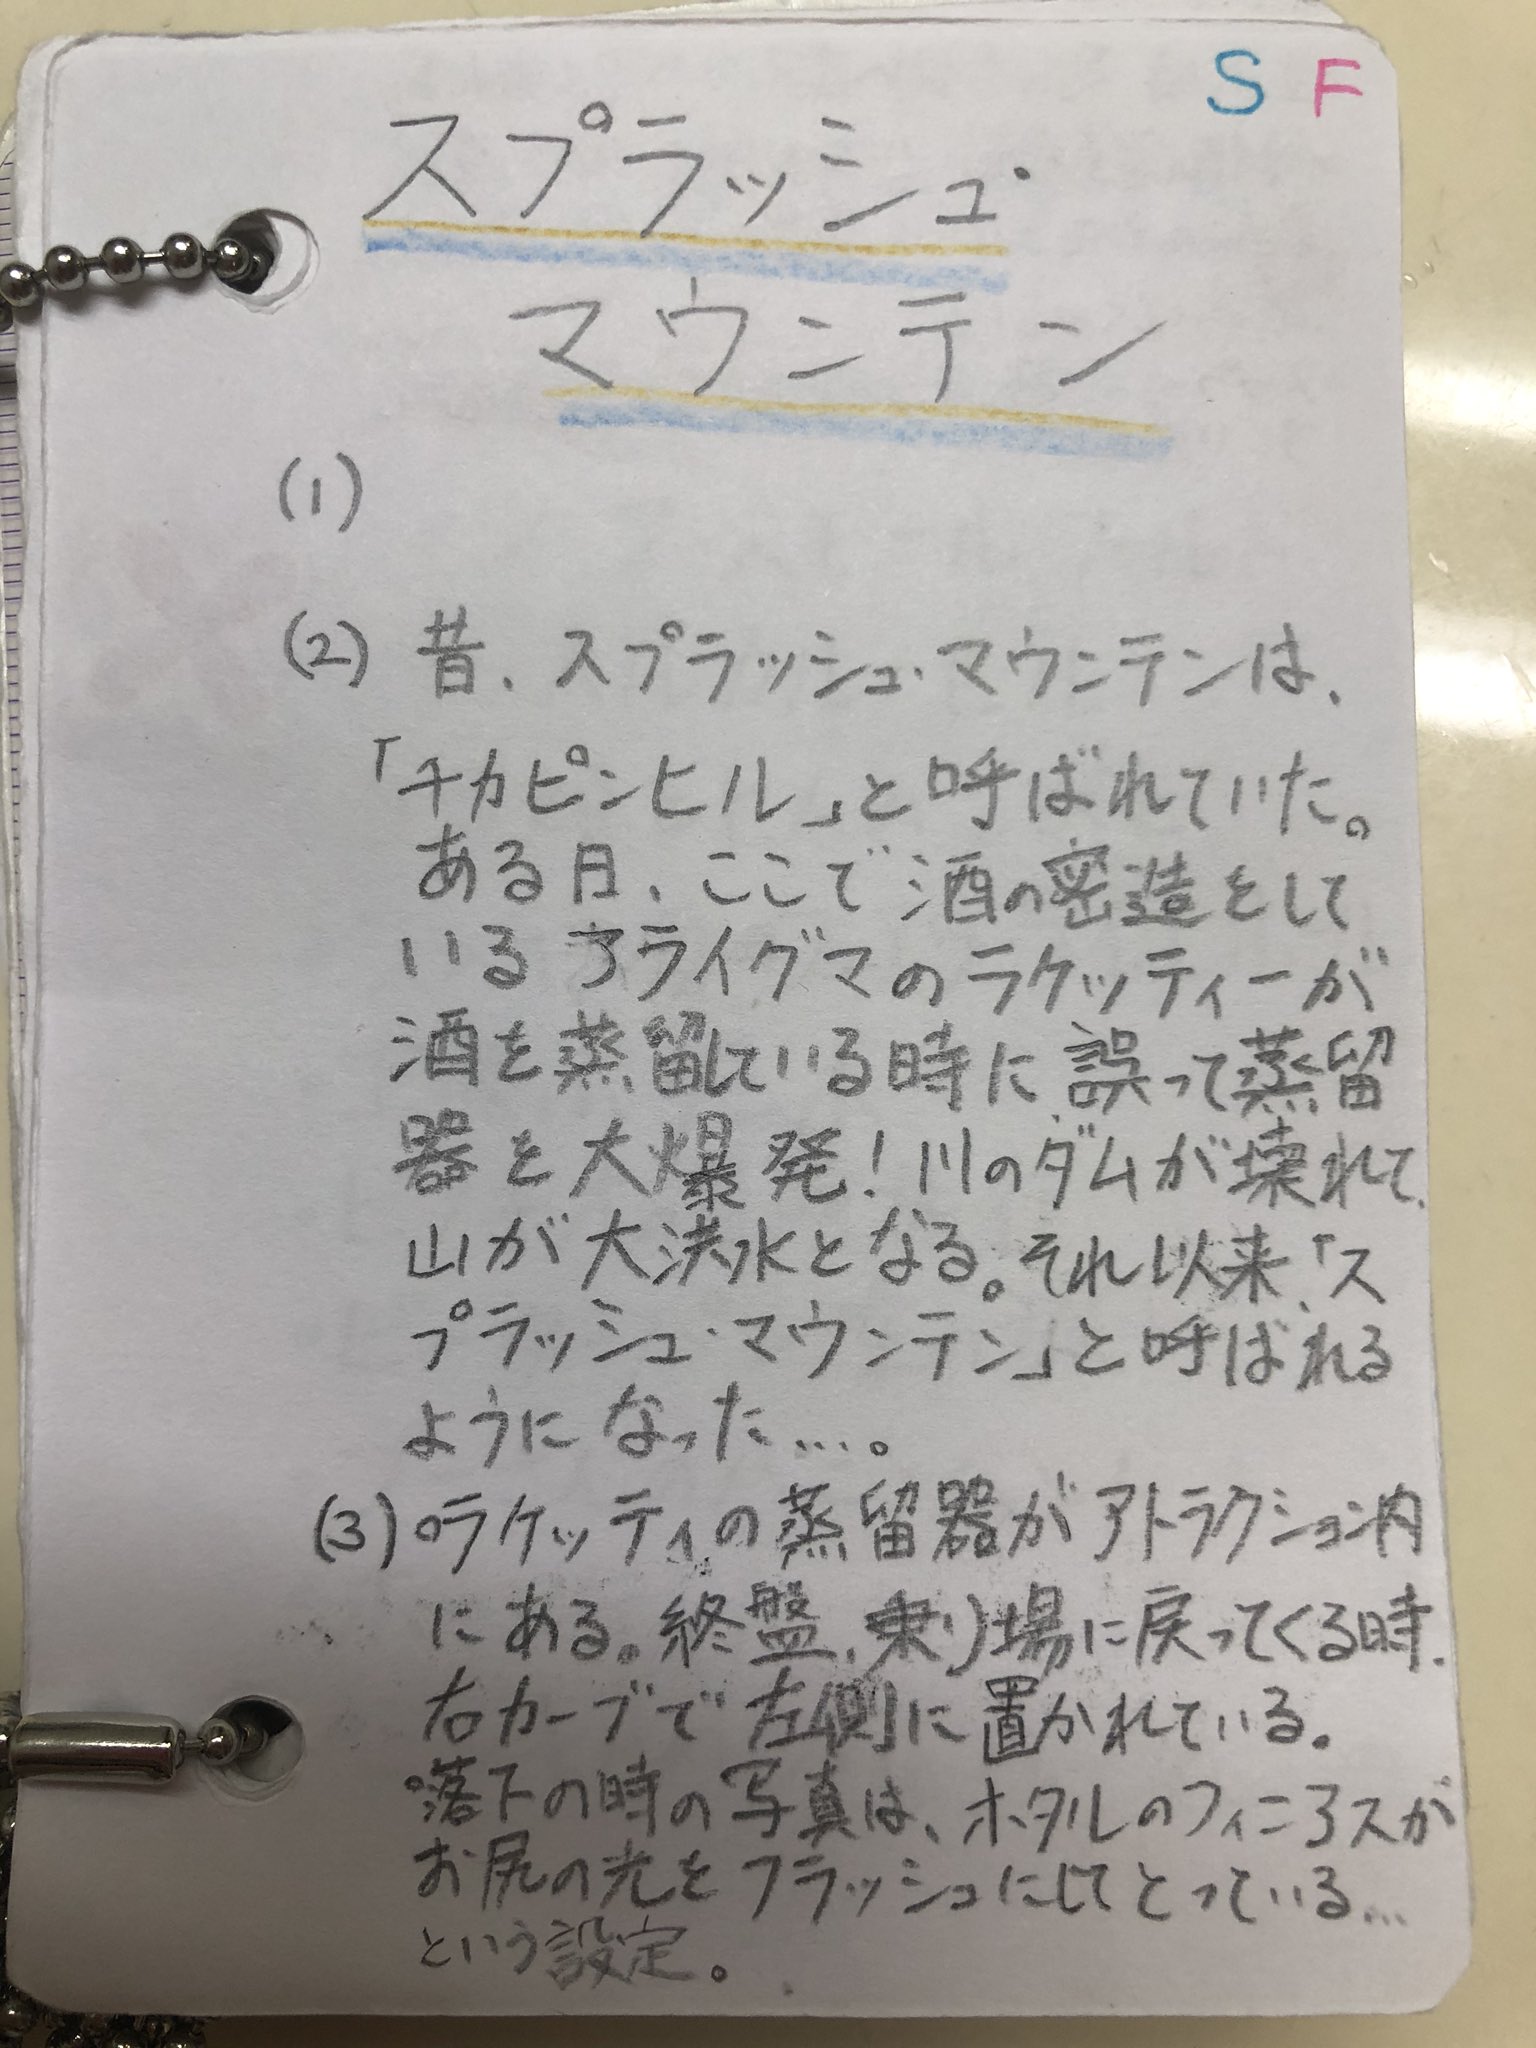 S F
スプラッシュ・
マウンテン
(1)
(2) 昔、スプラッシュ・マウンテンは、
「チカピンヒル」と呼ばれていた。
ある日、ここで酒の密造をして
いるアライグマのラケッティーが
酒を蒸留している時に誤って蒸留
器を大爆発!川のダムが壊れて、
山が大洪水となる。それ以来、「ス
プラッシュ・マウンテン」と呼ばれる
ようになった…。
(3)。ラケッティの蒸留器がアトラクション内
にある。終盤、乗り場に戻ってくる時、
右カーブで左側に置かれている。
。落下の時の写真は、ホタルのフィニアスが
お尻の光をフラッシュにしてとっている…
という設定。